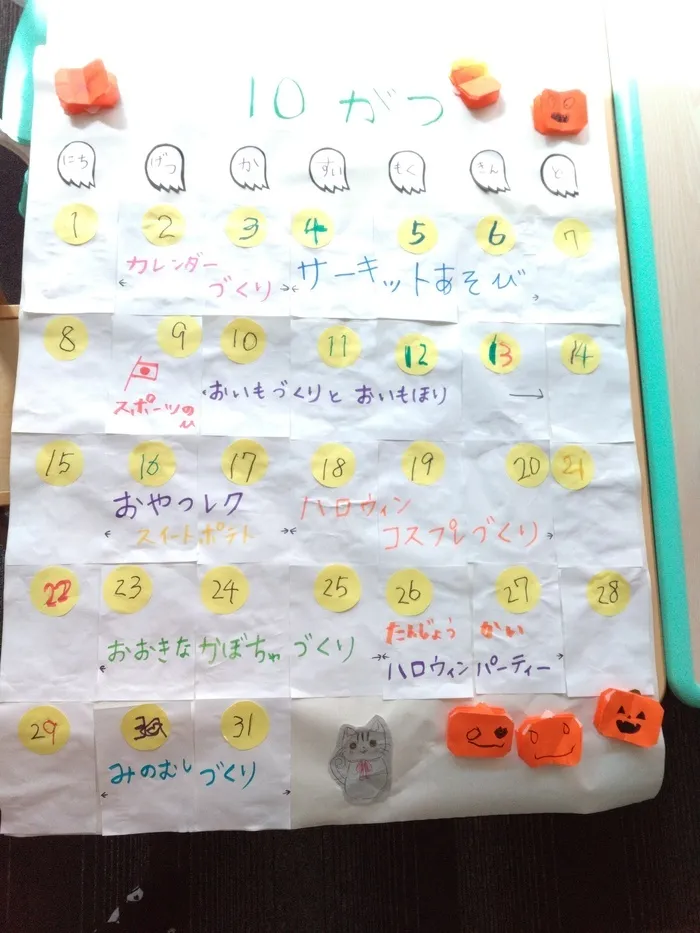 10 がつ
にち げつ か すい もく きん ど
1 2 3 4 5 6 7
カレンダー
づくり
サーキットあそび
8 9 10 11 12 13 14
スポーツの
ひ
おいもづくりと おいもほり
15 16 17 18 19 20 21
おやつレク
スイートポテト
ハロウィン
コスプレづくり
22 23 24 25 26 27 28
おおきな かぼちゃ づくり
たんじょう かい
ハロウィンパーティー
29 30 31
みのむしづくり